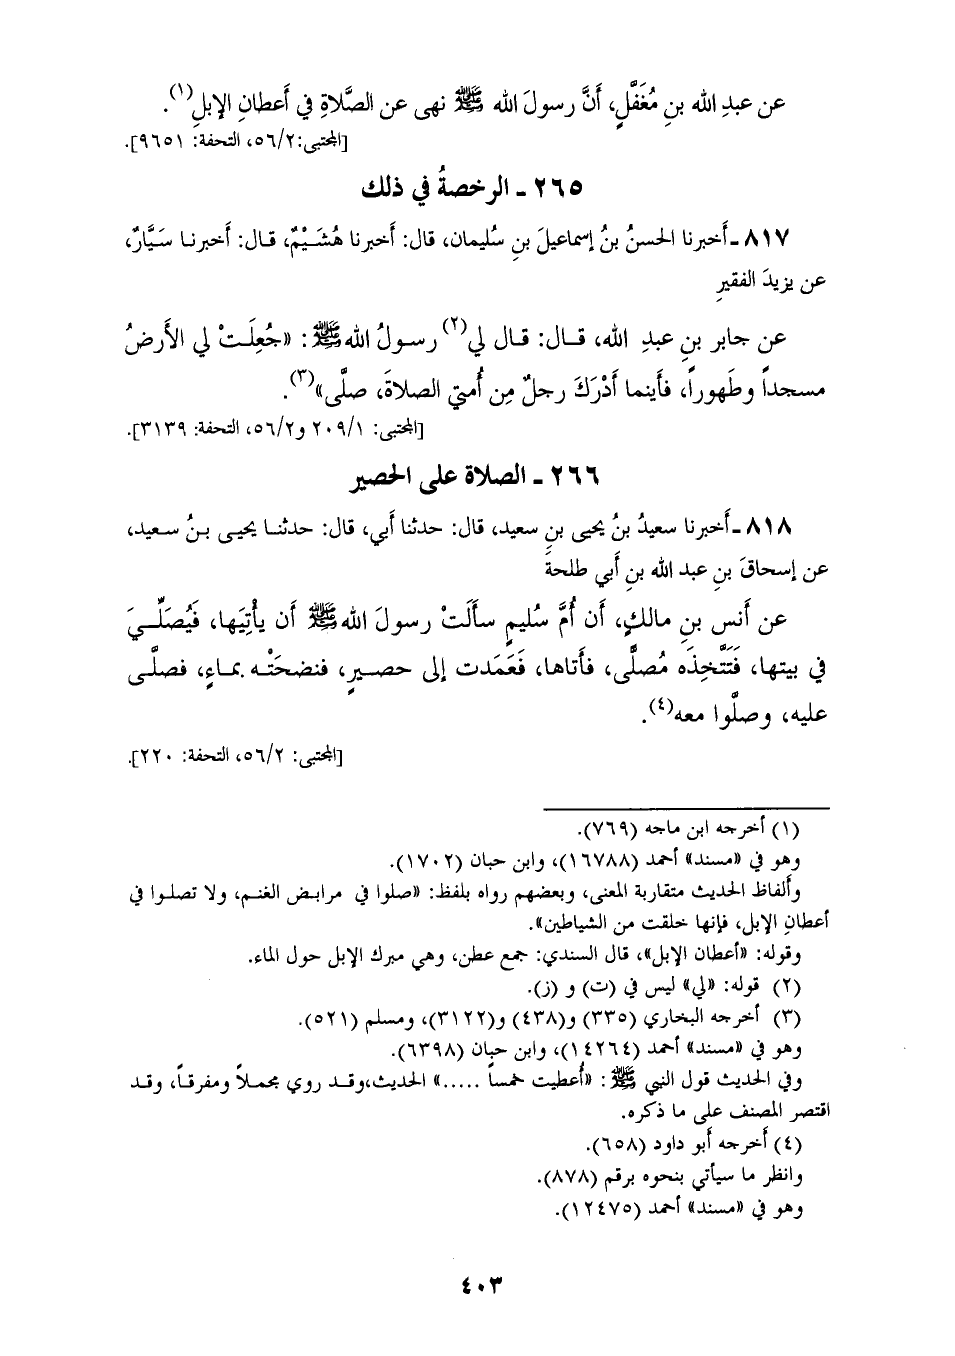 عن عبدِ الله بنِ مُغَفَّلٍ، أَنَّ رسولَ الله ﷺ نهى عن الصَّلاةِ في أَعطانِ الإبلِ(١).
[المجتبى: ٥٦/٢، التحفة: ٩٦٥١].
٢٦٥ ـ الرخصةُ في ذلك
٨١٧ ـ أَخبرنا الحسنُ بنُ إسماعيلَ بنِ سُليمان، قال: أَخبرنا هُشَيْمٌ، قال: أَخبرنا سَيَّارٌ،
عن يزيدَ الفقيرِ
عن جابر بنِ عبدِ الله، قال: قال لي(٢) رسولُ الله ﷺ: «جُعِلَتْ لي الأَرضُ
مسجداً وطَهوراً، فأَينما أَدْرَكَ رجلٌ مِن أُمتي الصلاةَ، صلَّى»(٣).
[المجتبى: ٢٠٩/١ و٥٦/٢، التحفة: ٣١٣٩].
٢٦٦ ـ الصلاة على الحصير
٨١٨ ـ أَخبرنا سعيدُ بنُ يحيى بنِ سعيد، قال: حدثنا أَبي، قال: حدثنا يحيى بنُ سعيد،
عن إسحاقَ بنِ عبد الله بنِ أَبي طلحةَ
عن أَنس بنِ مالكٍ، أَن أُمَّ سُليمٍ سأَلَتْ رسولَ الله ﷺ أَن يأْتِيَها، فَيُصَلِّيَ
في بيتها، فَتَتَّخِذَه مُصلَّى، فأَتاها، فَعَمَدت إلى حصيرٍ، فنضحَتْه بماءٍ، فصلَّى
عليه، وصلَّوا معه(٤).
[المجتبى: ٥٦/٢، التحفة: ٢٢٠].
(١) أخرجه ابن ماجه (٧٦٩).
وهو في «مسند» أحمد (١٦٧٨٨)، وابن حبان (١٧٠٢).
وألفاظ الحديث متقاربة المعنى، وبعضهم رواه بلفظ: «صلوا في مرابض الغنم، ولا تصلوا في
أعطانِ الإبل، فإنها خلقت من الشياطين».
وقوله: «أعطان الإبل»، قال السندي: جمع عطن، وهي مبرك الإبل حول الماء.
(٢) قوله: «لي» ليس في (ت) و (ز).
(٣) أخرجه البخاري (٣٣٥) و(٤٣٨) و(٣١٢٢)، ومسلم (٥٢١).
وهو في «مسند» أحمد (١٤٢٦٤)، وابن حبان (٦٣٩٨).
وفي الحديث قول النبي ﷺ: «أُعطيت خمساً .....» الحديث،وقد روي مجملاً ومفرقاً، وقد
اقتصر المصنف على ما ذكره.
(٤) أَخرجه أَبو داود (٦٥٨).
وانظر ما سيأتي بنحوه برقم (٨٧٨).
وهو في «مسند» أحمد (١٢٤٧٥).
٤٠٣